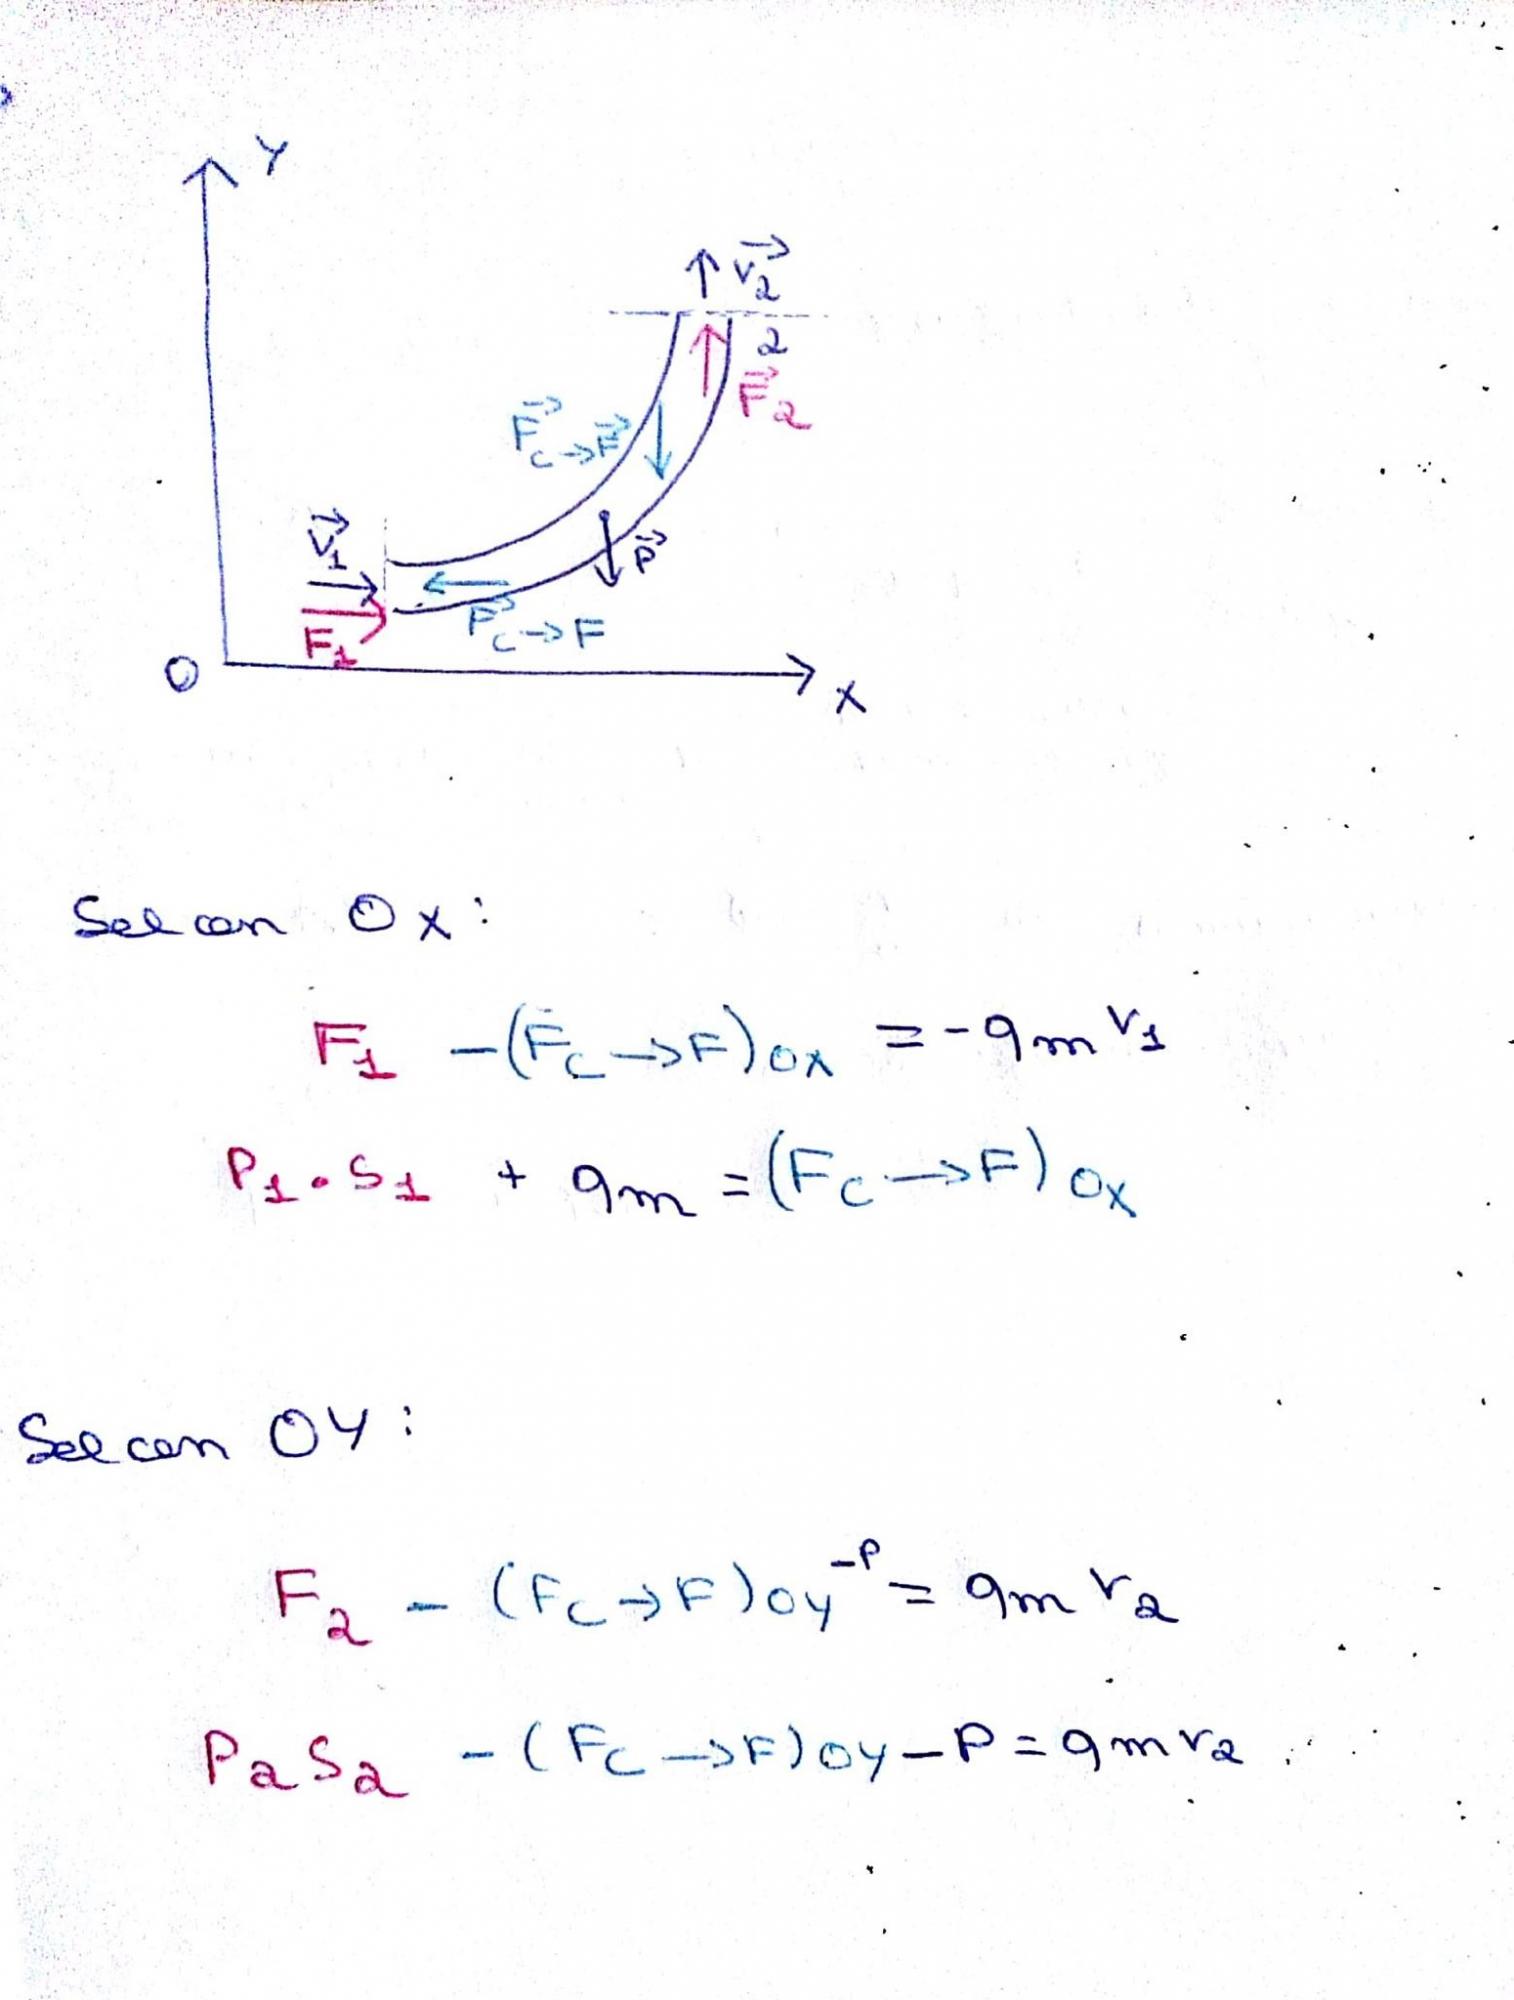 Y
→
V2
2
→
F2
→ →
Fc→F
→
V1
→
P
→
Fc→F
F1
O
X
Selon OX:
F1 -(Fc→F)OX = -qm V1
P1.S1 + qm = (Fc→F)OX
Selon OY:
F2 - (Fc→F)OY -P = qm V2
P2S2 -(Fc→F)OY-P = qmV2